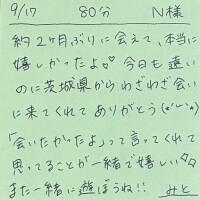 9/17 80分 N様
約2ヶ月ぶりに会えて、本当に
嬉しかったよ♡ 今日も遠い
のに茨城県からわざわざ会い
に来てくれてありがとう(*'ω'*)
「会いたかったよ」って言ってくれて
思ってることが一緒で嬉しい
また一緒に遊ぼうね!! みと